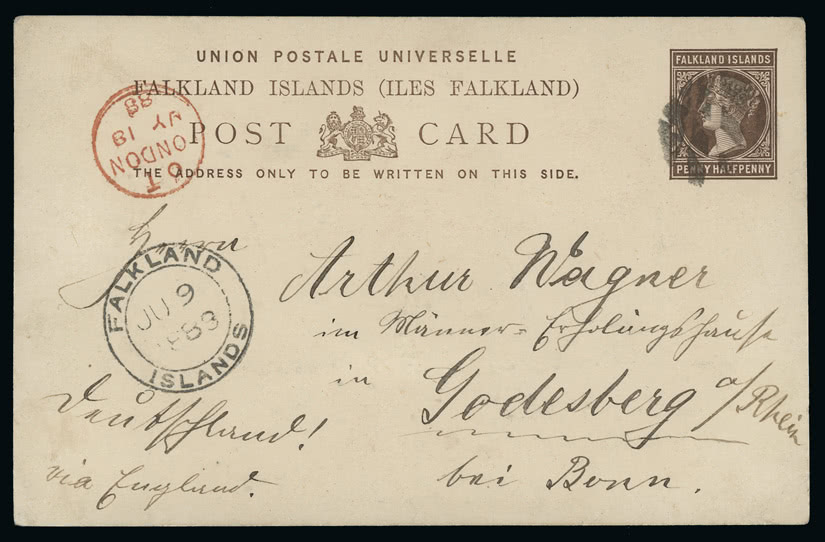 UNION POSTALE UNIVERSELLE
FALKLAND ISLANDS (ILES FALKLAND)
POST CARD
THE ADDRESS ONLY TO BE WRITTEN ON THIS SIDE.
FALKLAND ISLANDS
PENNY HALFPENNY
LONDON
19
88
FALKLAND
JU 9
ISLANDS
Herrn
Arthur Wagner
im Männer-Erholungshause
in
Godesberg a/Rhein
bei Bonn.
Deutschland!
via England.